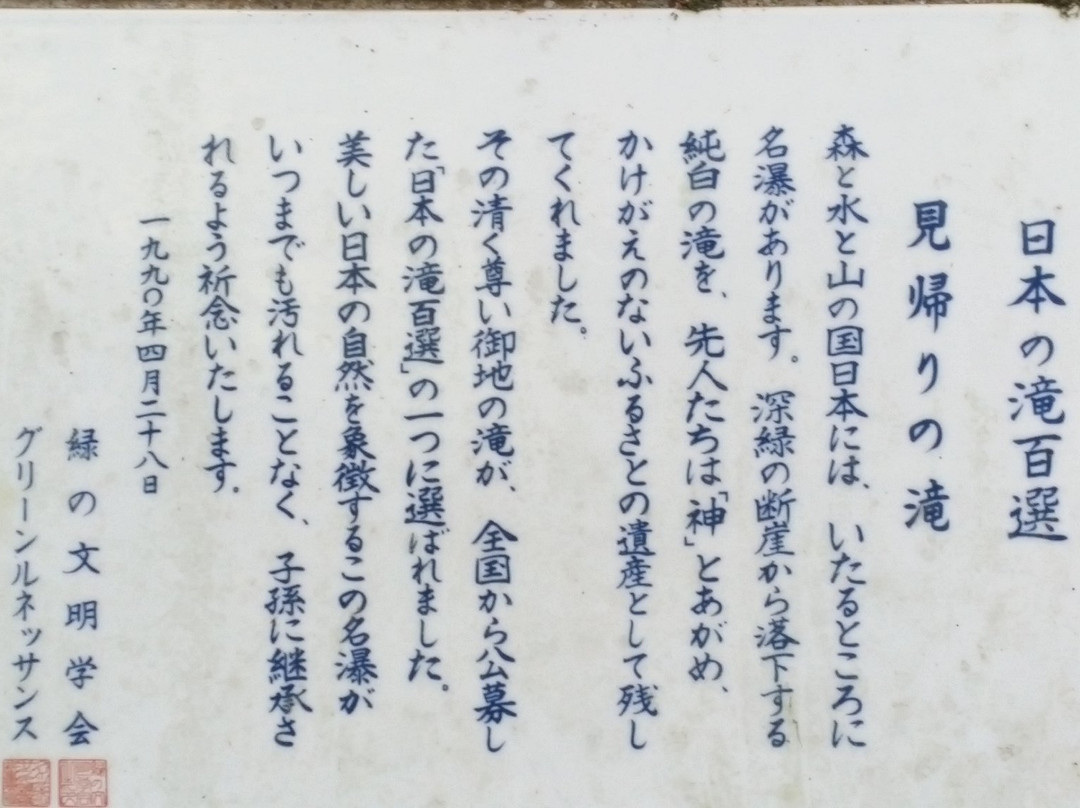 日本の滝百選
見帰りの滝
森と水と山の国日本には、いたるところに
名瀑があります。深緑の断崖から落下する
純白の滝を、先人たちは「神」とあがめ、
かけがえのないふるさとの遺産として残し
てくれました。
その清く尊い御地の滝が、全国から公募し
た「日本の滝百選」の一つに選ばれました。
美しい日本の自然を象徴するこの名瀑が
いつまでも汚れることなく、子孫に継承さ
れるよう祈念いたします。
一九九〇年四月二十八日
緑の文明学会
グリーンルネッサンス